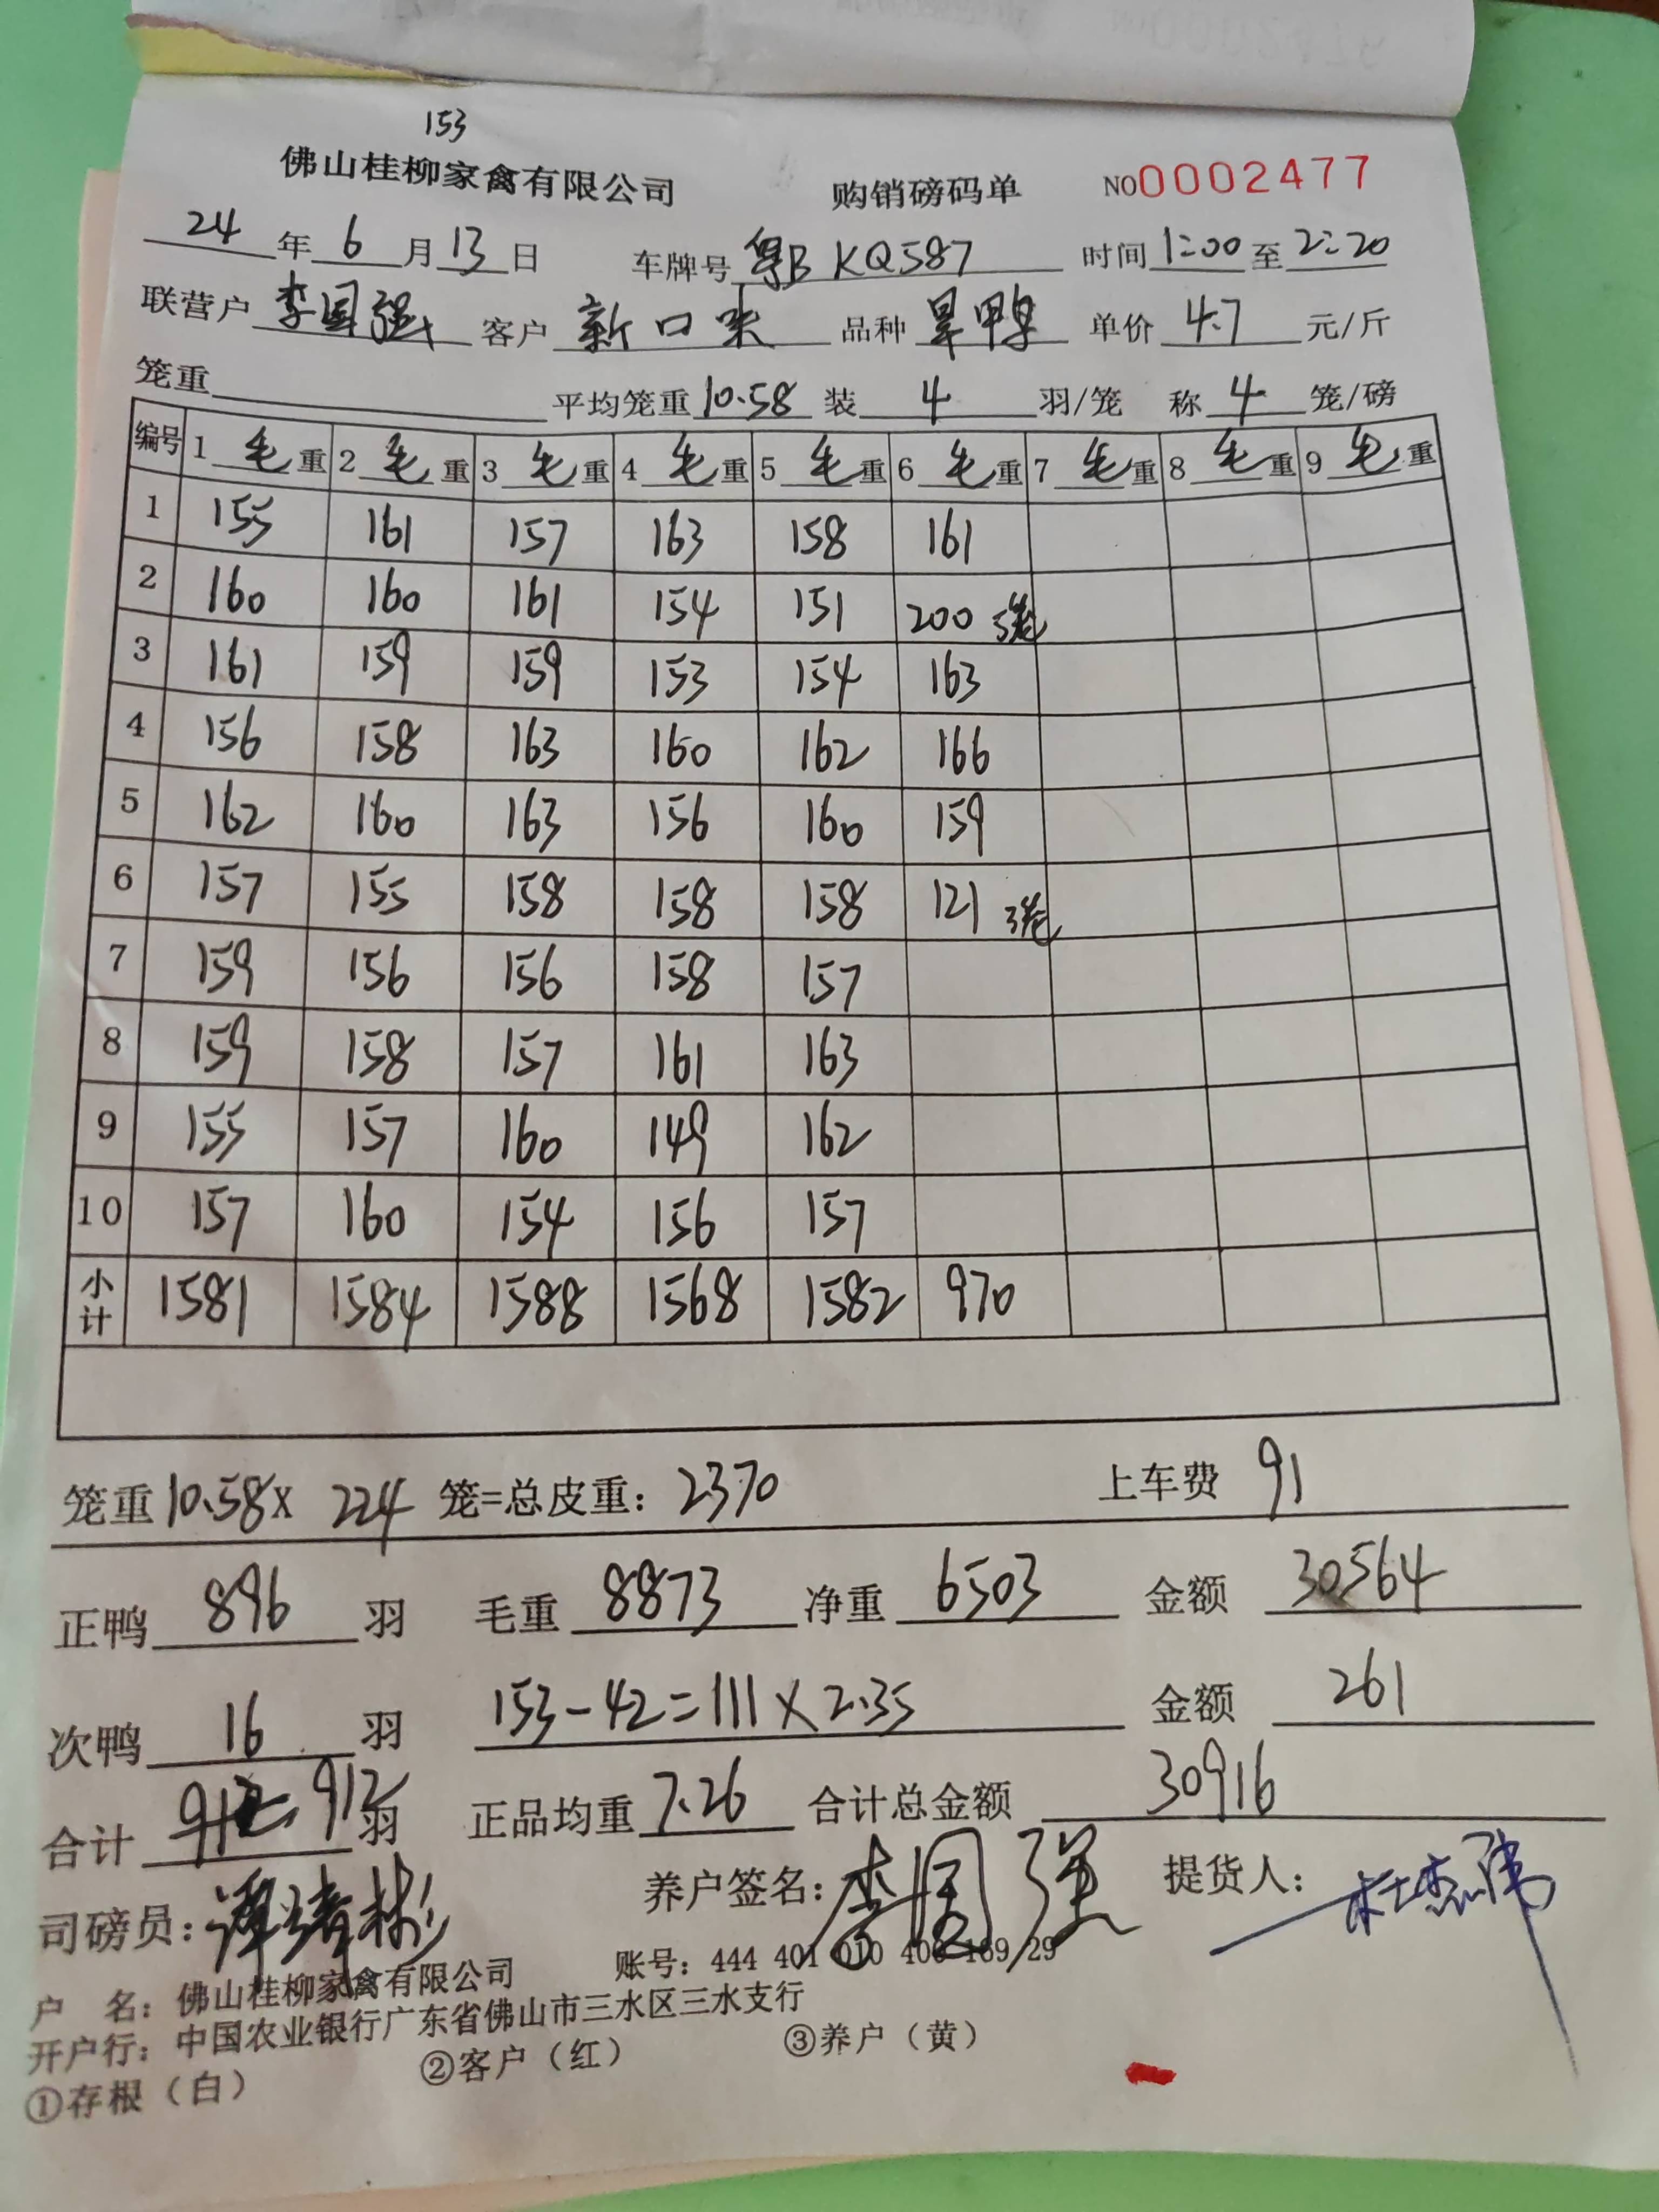 153
佛山桂柳家禽有限公司 购销磅码单 NO0002477
24年6月13日 车牌号 粤B KQ587 时间 1:00 至 2:20
联营户 李国强 客户 新口味 品种 旱鸭 单价 4.7 元/斤
笼重 平均笼重 10.58 装 4 羽/笼 称 4 笼/磅
编号 1 毛重 2 毛重 3 毛重 4 毛重 5 毛重 6 毛重 7 毛重 8 毛重 9 毛重
1 155 161 157 163 158 161
2 160 160 161 154 151 200 5笼
3 161 159 159 153 154 163
4 156 158 163 160 162 166
5 162 160 163 156 160 159
6 157 155 158 158 158 121 3笼
7 159 156 156 158 157
8 159 158 157 161 163
9 155 157 160 149 162
10 157 160 154 156 157
小计 1581 1584 1588 1568 1582 970
笼重 10.58 X 224 笼=总皮重: 2370 上车费 91
正鸭 896 羽 毛重 8873 净重 6503 金额 30564
次鸭 16 羽 153-42=111×2.35 金额 261
合计 912 羽 正品均重 7.26 合计总金额 30916
司磅员: 养户签名: 李国强 提货人: 杜杰伟
户 名: 佛山桂柳家禽有限公司 账号: 444 401 010 400 169 29
开户行: 中国农业银行广东省佛山市三水区三水支行
①存根（白） ②客户（红） ③养户（黄）